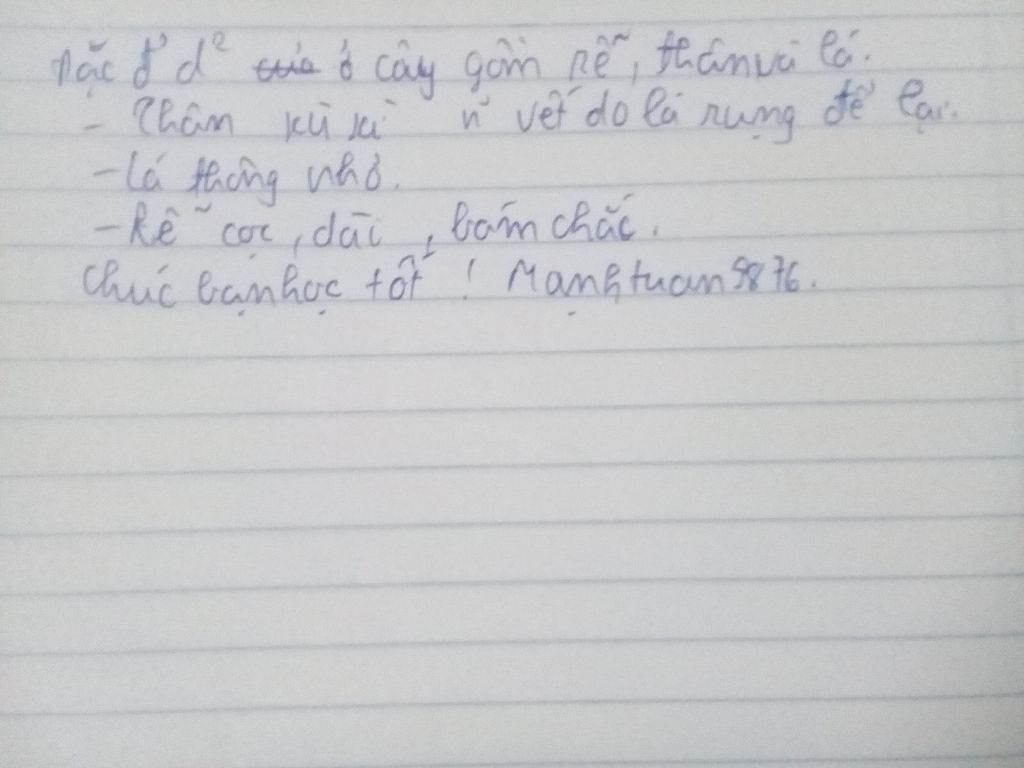 đặc đ' d² ở cây gồm rễ, thân và lá.
- Thân xù xì vết do lá rụng để lại.
- Lá thông nhỏ.
- Rễ cọc, dài, bám chắc.
Chúc bạn học tốt! Mạnhtuan9876.